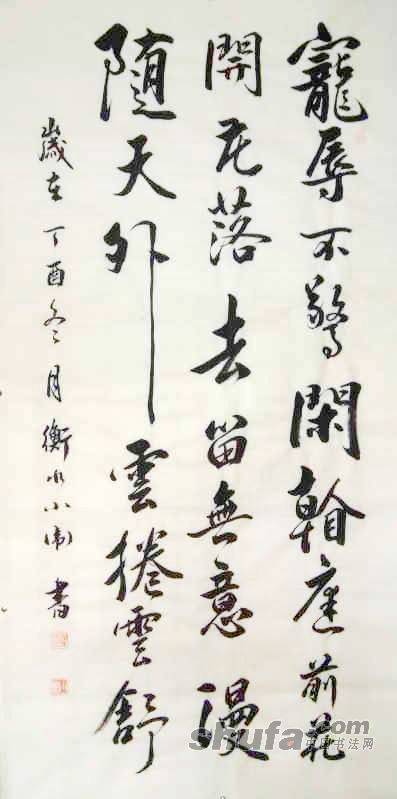 寵辱不驚閑看庭前花
開花落去留無意漫
隨天外雲捲雲舒
歲在丁酉冬月衡水小書
shufa.com
中国书法网